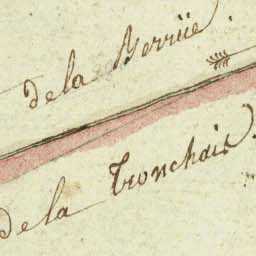 de la Berrüe.
de la Tronchais.